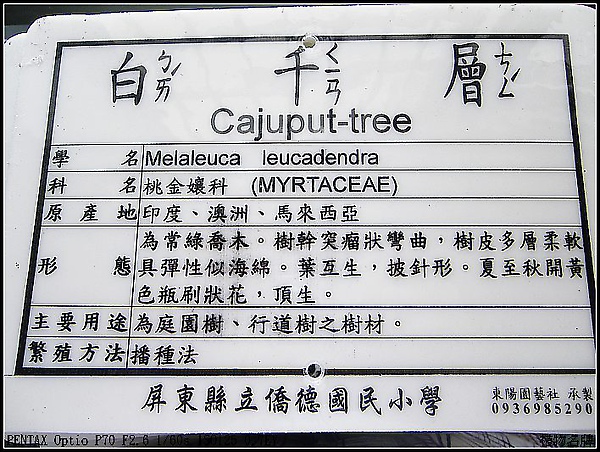 白ㄅㄞˊ 千ㄑㄧㄢ 層ㄘㄥˊ
Cajuput-tree
學名 Melaleuca leucadendra
科名 桃金孃科 (MYRTACEAE)
原產地 印度、澳洲、馬來西亞
形態 為常綠喬木。樹幹突瘤狀彎曲，樹皮多層柔軟
具彈性似海綿。葉互生，披針形。夏至秋開黃
色瓶刷狀花，頂生。
主要用途 為庭園樹、行道樹之樹材。
繁殖方法 播種法
屏東縣立僑德國民小學
東陽園藝社 承製
0936985290
PENTAX Optio P70 F2.6 1/60s
植物名牌